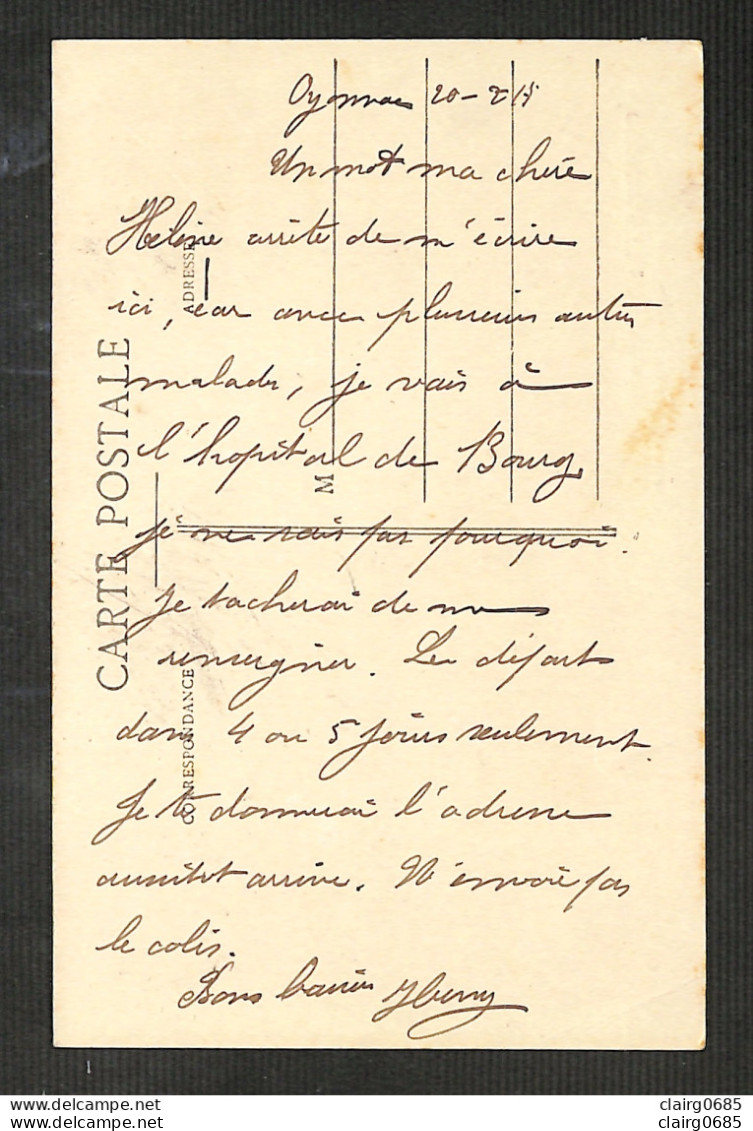 Oyonnax 20-2 15
Un mot ma chère
Hélène arrête de m'écrire
ici, car avec plusieurs autres
malades, je vais à
l'hopital de Bourg,
je ne sais pas pourquoi.
Je tacherai de me
renseigner. Le départ
dans 4 ou 5 jours seulement.
Je te donnerai l'adresse
aussitot arrivé. N'envoie pas
le colis.
Bons baisers
CARTE POSTALE
ADRESSE
M
CORRESPONDANCE
clairg0685
clairg0685